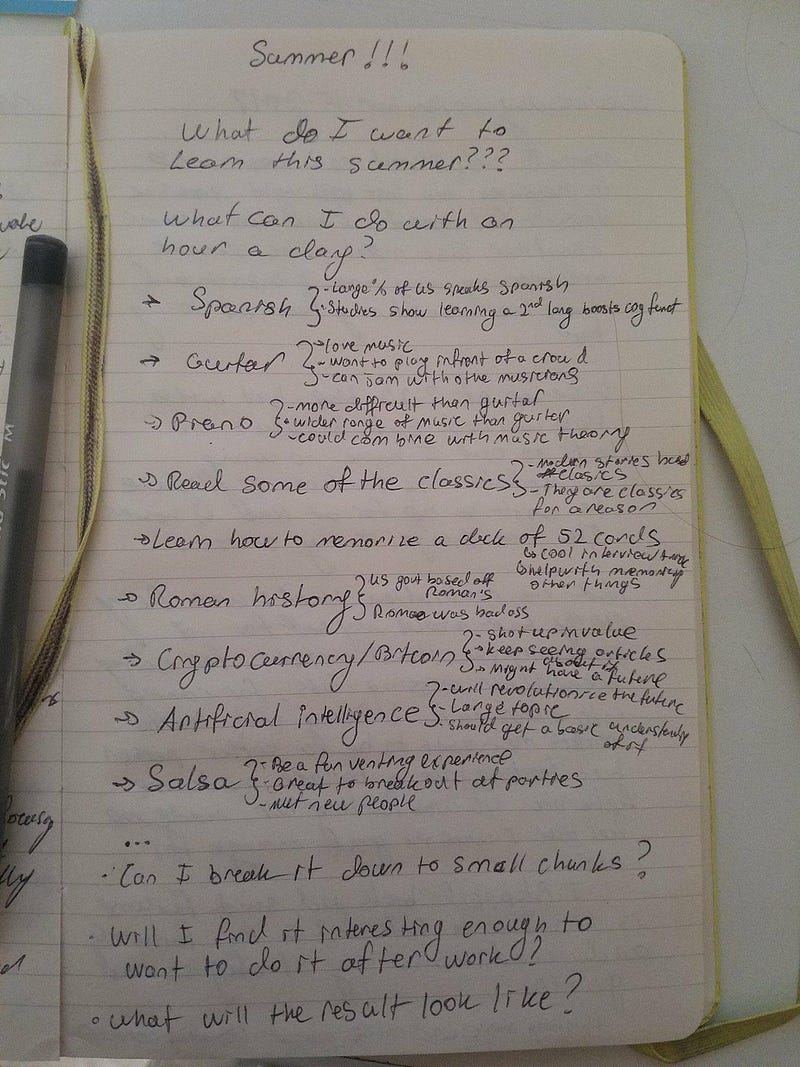 Summer!!!
What do I want to
Learn this summer???
What can I do with an
hour a day?
→ Spanish
- Large % of US speaks Spanish
- Studies show learning a 2nd lang boosts cog funct
→ Guitar
- love music
- want to play infront of a crowd
- can jam with othe musicians
→ Piano
- more difficult than guitar
- wider range of music than guitar
- could combine with music theory
→ Read some of the classics
- modern stories based
classics
- They are classics
for a reason
→ Learn how to memorize a deck of 52 cards
↳ cool interview
↳ help with memorizing
other things
→ Roman history
US govt based off
Roman's
Rome was badass
→ Cryptocurrency/Bitcoin
- shot up in value
- keep seeing articles
about it
- Might have a future
→ Artificial intelligence
- will revolutionize the future
- Large topic
- should get a basic understanding
of it
→ Salsa
- Be a fun venting experience
- Great to breakout at parties
- meet new people
...
· Can I break it down to small chunks?
· Will I find it interesting enough to
want to do it after work?
· What will the result look like?